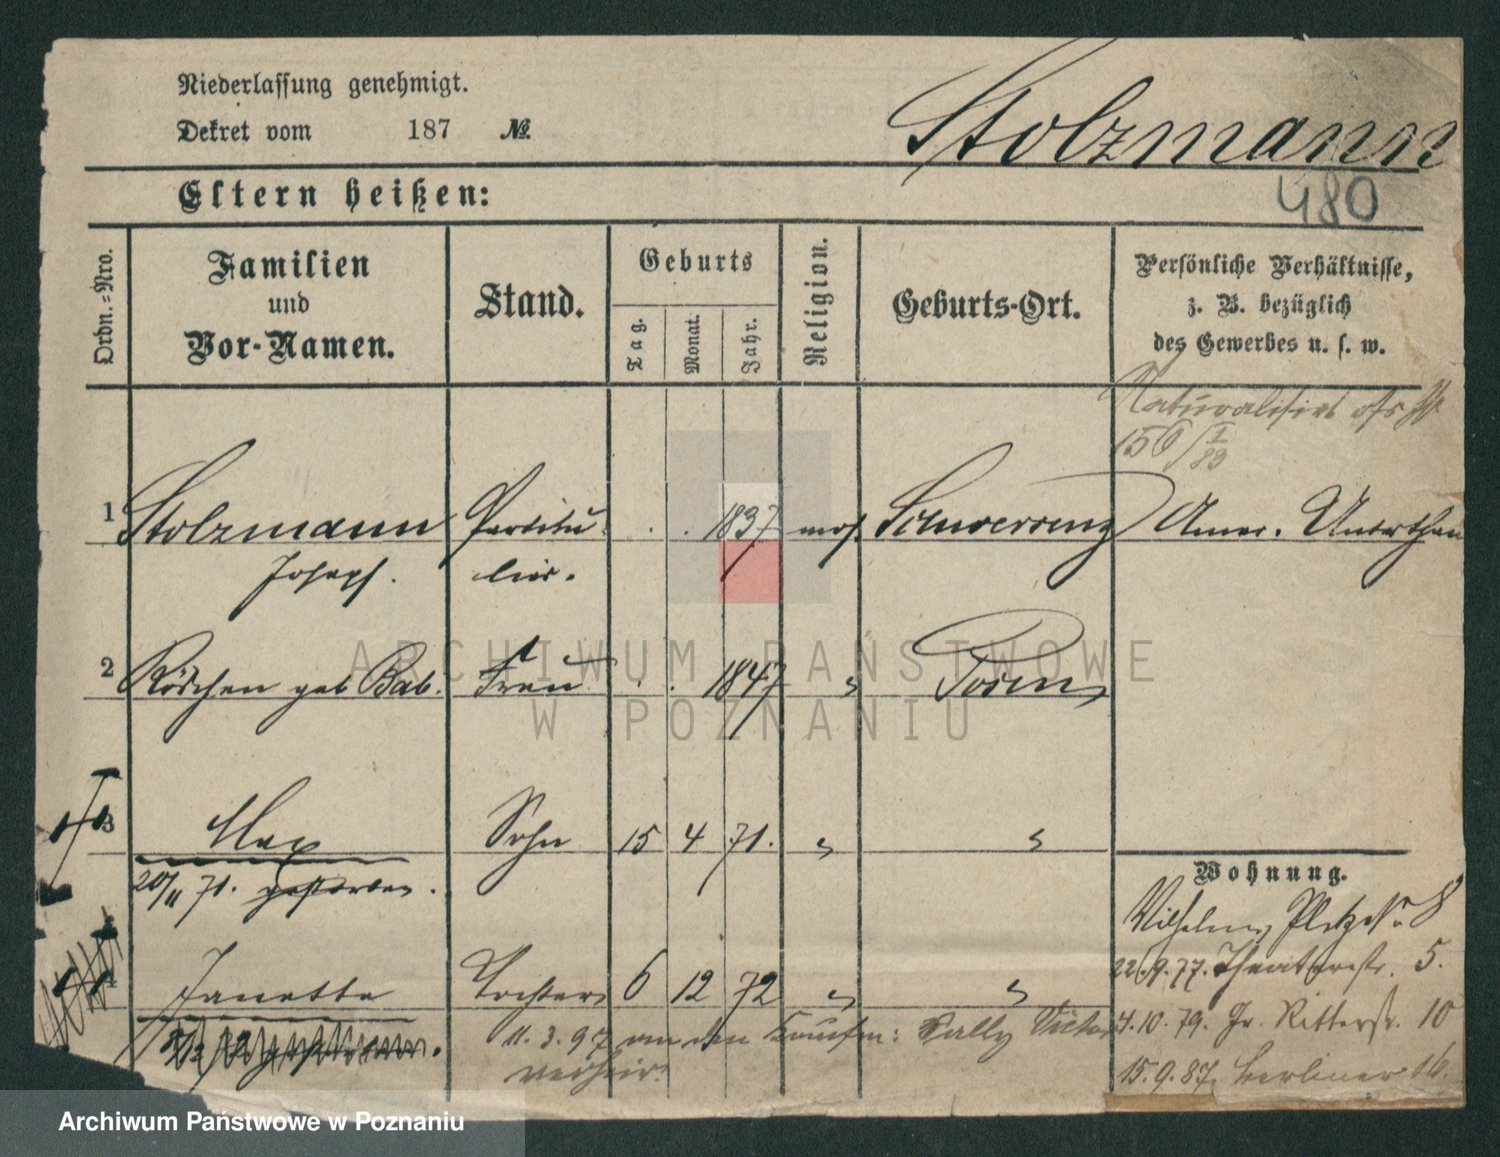 Niederlassung genehmigt.
Dekret vom 187 №
Stolzmann
480
Eltern heißen:
Ordn.-Nro.
Familien
und
Vor-Namen.
Stand.
Geburts
Tag.
Monat.
Jahr.
Religion.
Geburts-Ort.
Persönliche Verhältnisse,
z. B. bezüglich
des Gewerbes u. s. w.
Naturalisirt
150/I 83
1 Stolzmann Partiku 1837 mos. Schwersenz Amer. Unterthan
Joseph. lier.
2 Röschen geb Bab. Frau 1847 " Posen
ARCHIWUM PAŃSTWOWE
W POZNANIU
3 Max Sohn 15 4 71. " "
20/11 71. gestorben.
Wohnung.
Wilhelms Platz 8
22.9.77. Theaterstr. 5.
4 Janette Tochter 6 12 72 " "
11.3.97 an den Kaufm: Sally Victor
verheir.
4.10.79. Gr. Ritterstr. 10
15.9.87 Berliner 16.
Archiwum Państwowe w Poznaniu